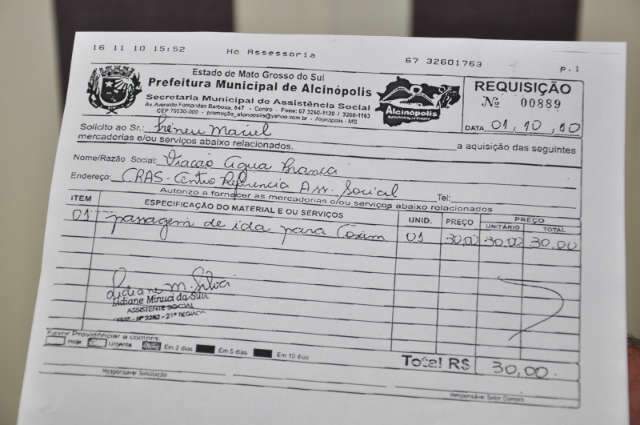 16 11 10 15:52 Hc Assessoria 67 32601763 p.1
Estado de Mato Grosso do Sul
Prefeitura Municipal de Alcinópolis
Secretaria Municipal de Assistência Social
CEP 79530-000 - Alcinópolis - MS
Alcinópolis
REQUISIÇÃO
Nº 00889
DATA 01, 10, 10
Solicito ao Sr.: Irineu Maciel a aquisição das seguintes
mercadorias e/ou serviços abaixo relacionados.
Nome/Razão Social: Viação Água Branca
Endereço: CRAS - Centro Referencia Ass. Social Tel:
Autorizo a fornecer as mercadorias e/ou serviços abaixo relacionados
ITEM ESPECIFICAÇÃO DO MATERIAL E OU SERVIÇOS UNID. PREÇO PREÇO
UNITÁRIO TOTAL
01 passagem de ida para Coxim 01 30,00 30,00 30,00
Lidiane M. Silva
Lidiane Minuci da Silva
ASSISTENTE SOCIAL
21ª REGIÃO
Favor Providenciar a compra:
Hoje Urgente Em 2 dias Em 5 dias Em 10 dias
Total R$ 30,00
Responsável Solicitação Responsável Setor Compras